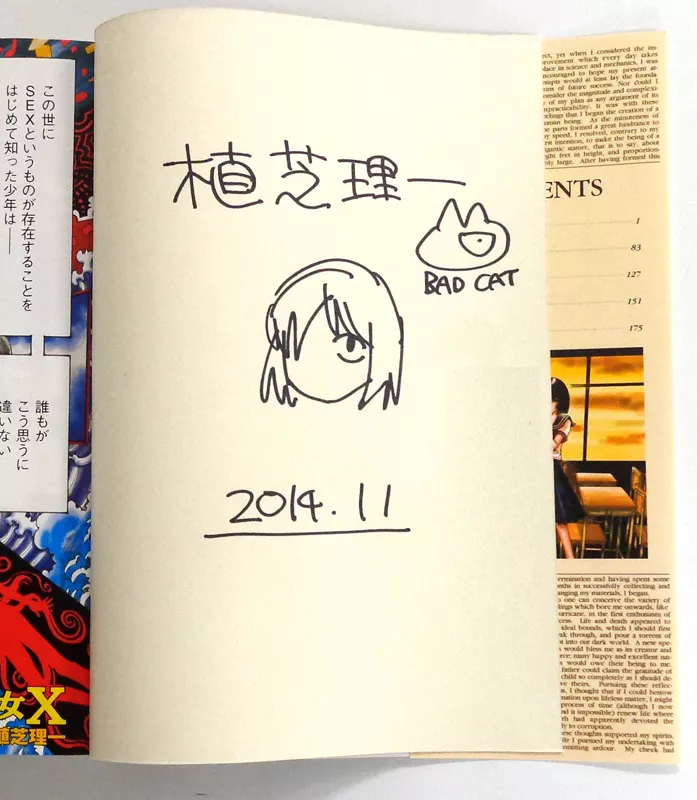 この世に
SEXというものが存在することを
はじめて知った少年は――
誰もが
こう思うに
違いない
女X
植芝理一
植芝理一
BAD CAT
2014.11
, yet when I considered the im-
provement which every day takes
place in science and mechanics, I was
encouraged to hope my present at-
tempts would at least lay the founda-
tions of future success. Nor could I
consider the magnitude and complexi-
ty of my plan as any argument of its
impracticability. It was with these
feelings that I began the creation of a
human being. As the minuteness of
the parts formed a great hindrance to
my speed, I resolved, contrary to my
first intention, to make the being of a
gigantic stature, that is to say, about
eight feet in height, and proportion-
ably large. After having formed this
ENTS
1
83
127
151
175
termination and having spent some
months in successfully collecting and
arranging my materials, I began.
No one can conceive the variety of
feelings which bore me onwards, like
a hurricane, in the first enthusiasm of
success. Life and death appeared to
me ideal bounds, which I should first
break through, and pour a torrent of
light into our dark world. A new spe-
cies would bless me as its creator and
source; many happy and excellent na-
tures would owe their being to me.
No father could claim the gratitude of
his child so completely as I should de-
serve theirs. Pursuing these reflec-
tions, I thought that if I could bestow
animation upon lifeless matter, I might
in process of time (although I now
found it impossible) renew life where
death had apparently devoted the
body to corruption.
These thoughts supported my spirits,
while I pursued my undertaking with
unremitting ardour. My cheek had